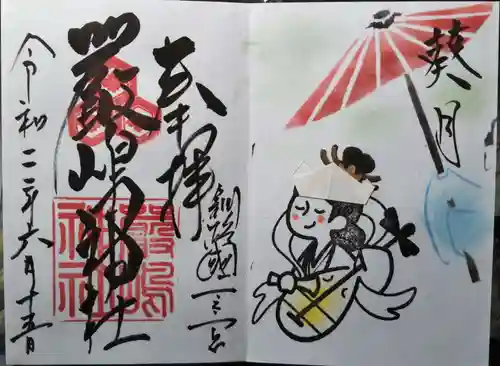 葵月
奉拝
釧路國一之宮
嚴嶋神社
嚴島
神社
令和二年六月十五日